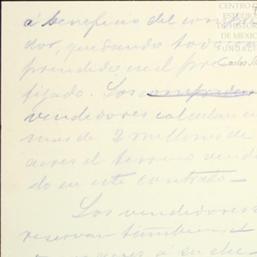 á beneficio del com
dor, quedando todo
prendido en el pre
fijado. Los
vendedores calculan en
mas de 2 millones de
acres el terreno vendi
do en este contrato.
Los vendedores
reservan tambien
acres á su
CENTRO
ESTUDIOS
DE MEXICO
FUNDACI
Carlos